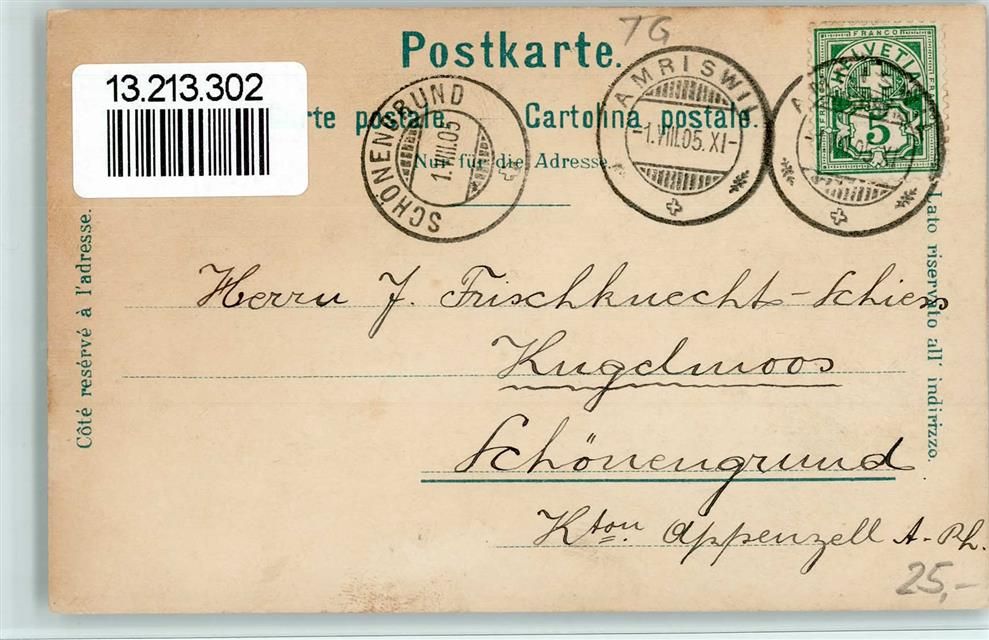 TG
Postkarte.
13.213.302
rte postale. Cartolina postale.
Nur für die Adresse.
SCHÖNENGRUND
1.VIII.05
AMRISWIL
-1.VIII.05.XI-
FRANCO
HELVETIA
5
Côté resérvé à l'adresse.
Lato riservato all' indirizzo.
Herrn J. Frischknecht-Schiess
Kugelmoos
Schönengrund
Kton. Appenzell A.-Rh.
25,-